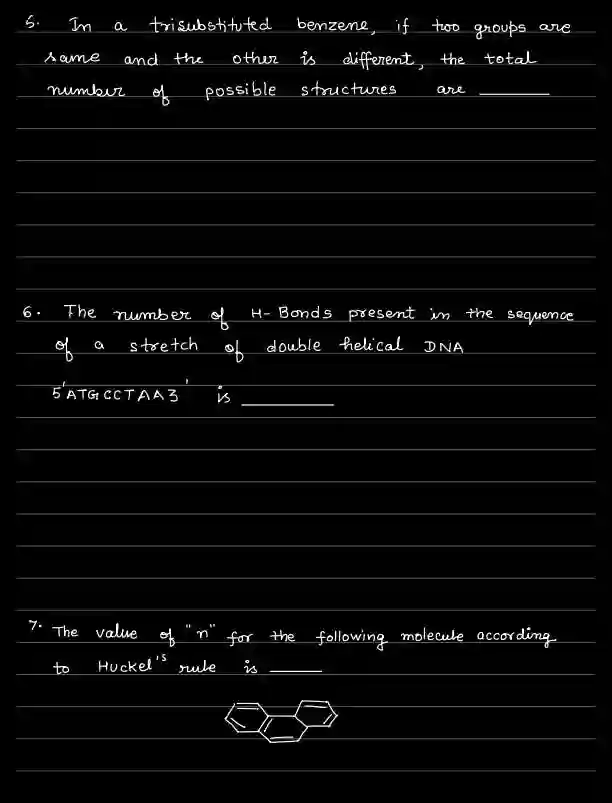 5. In a trisubstituted benzene, if two groups are
same and the other is different, the total
number of possible structures are ______
6. The number of H-Bonds present in the sequence
of a stretch of double helical DNA
5'ATGCCTAA3' is ______
7. The value of "n" for the following molecule according
to Huckel's rule is ______